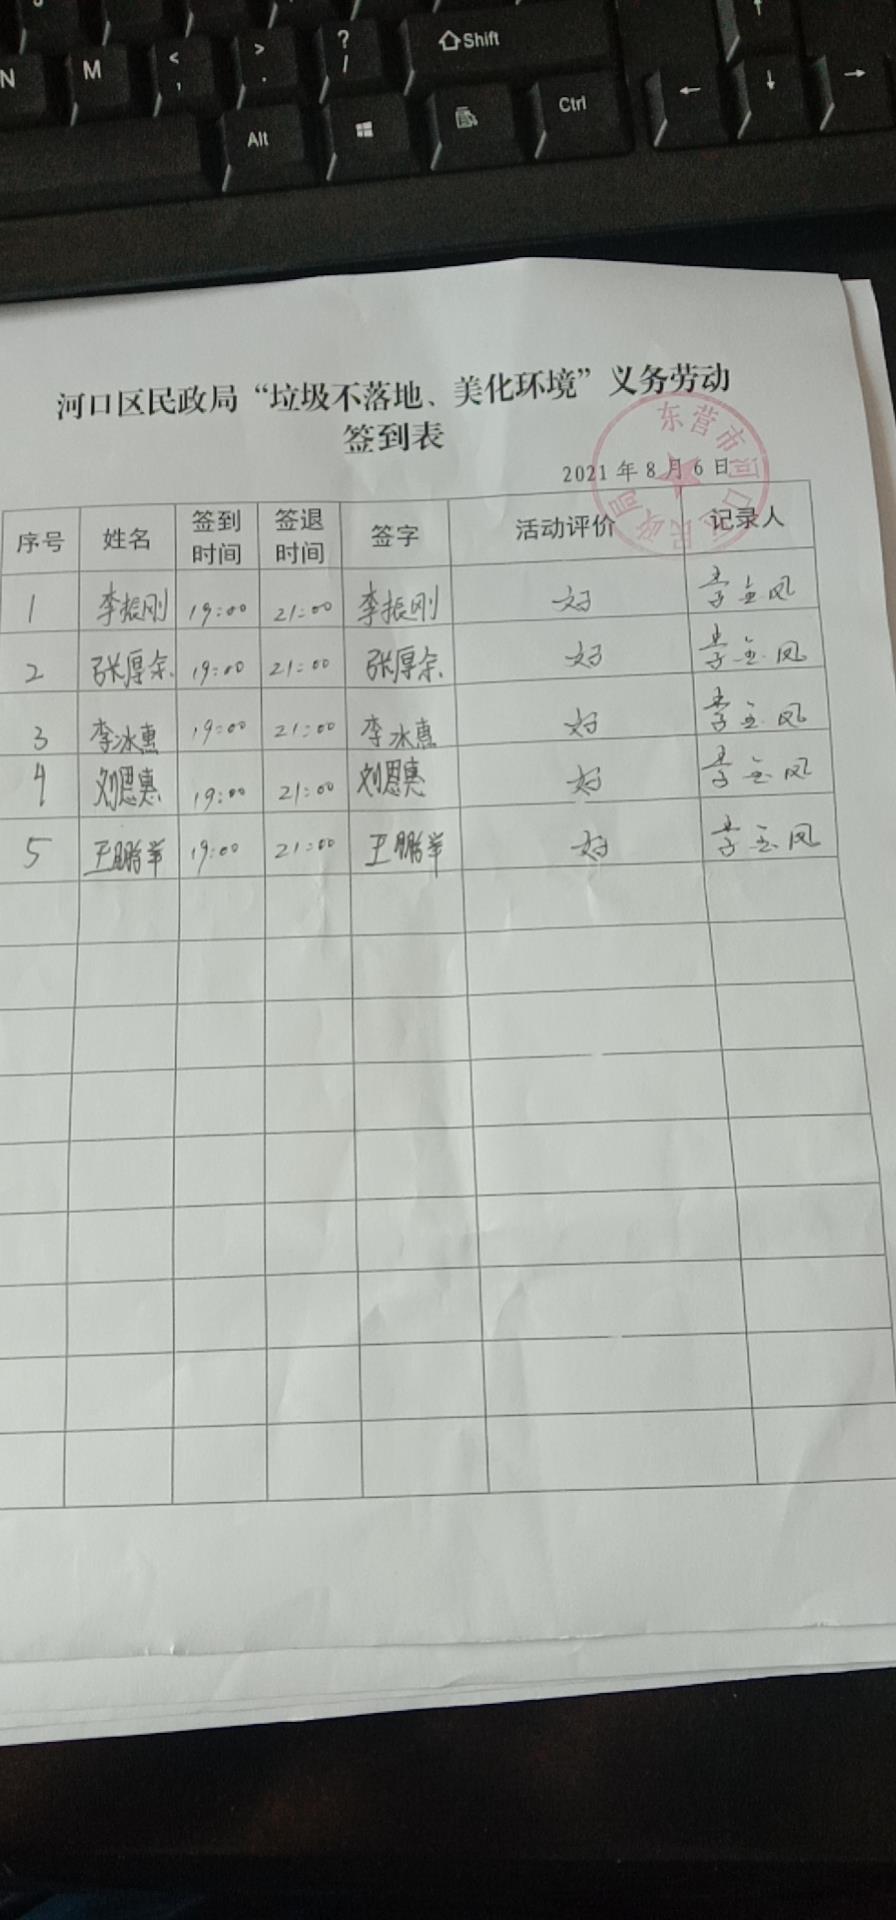 Shift
N
M
<
,
>
.
?
/
Alt
Ctrl
河口区民政局“垃圾不落地、美化环境”义务劳动
签到表
东营市河口区民政局
2021 年 8 月 6 日
序号 姓名 签到时间 签退时间 签字 活动评价 记录人
1 李振刚 19:00 21:00 李振刚 好
2 张厚余 19:00 21:00 张厚余 好
3 李冰惠 19:00 21:00 李冰惠 好
4 刘恩惠 19:00 21:00 刘恩惠 好
5 王鹏举 19:00 21:00 王鹏举 好